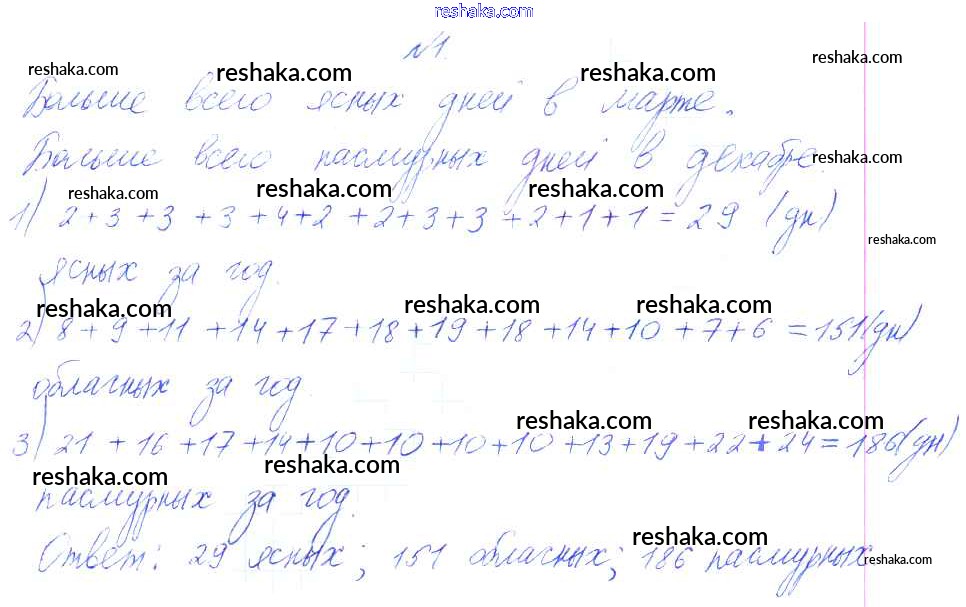 reshaka.com
№1.
reshaka.com reshaka.com reshaka.com reshaka.com
Больше всего ясных дней в марте.
Больше всего пасмурных дней в декабре.
reshaka.com
reshaka.com reshaka.com reshaka.com
1) 2+3+3+3+4+2+2+3+3+2+1+1=29 (дн)
reshaka.com
ясных за год.
reshaka.com reshaka.com reshaka.com
2) 8+9+11+14+17+18+19+18+14+10+7+6=151(дн)
облачных за год.
reshaka.com reshaka.com
3) 21+16+17+14+10+10+10+10+13+19+22+24=186(дн)
reshaka.com reshaka.com
пасмурных за год.
reshaka.com
Ответ: 29 ясных; 151 облачных; 186 пасмурных
reshaka.com